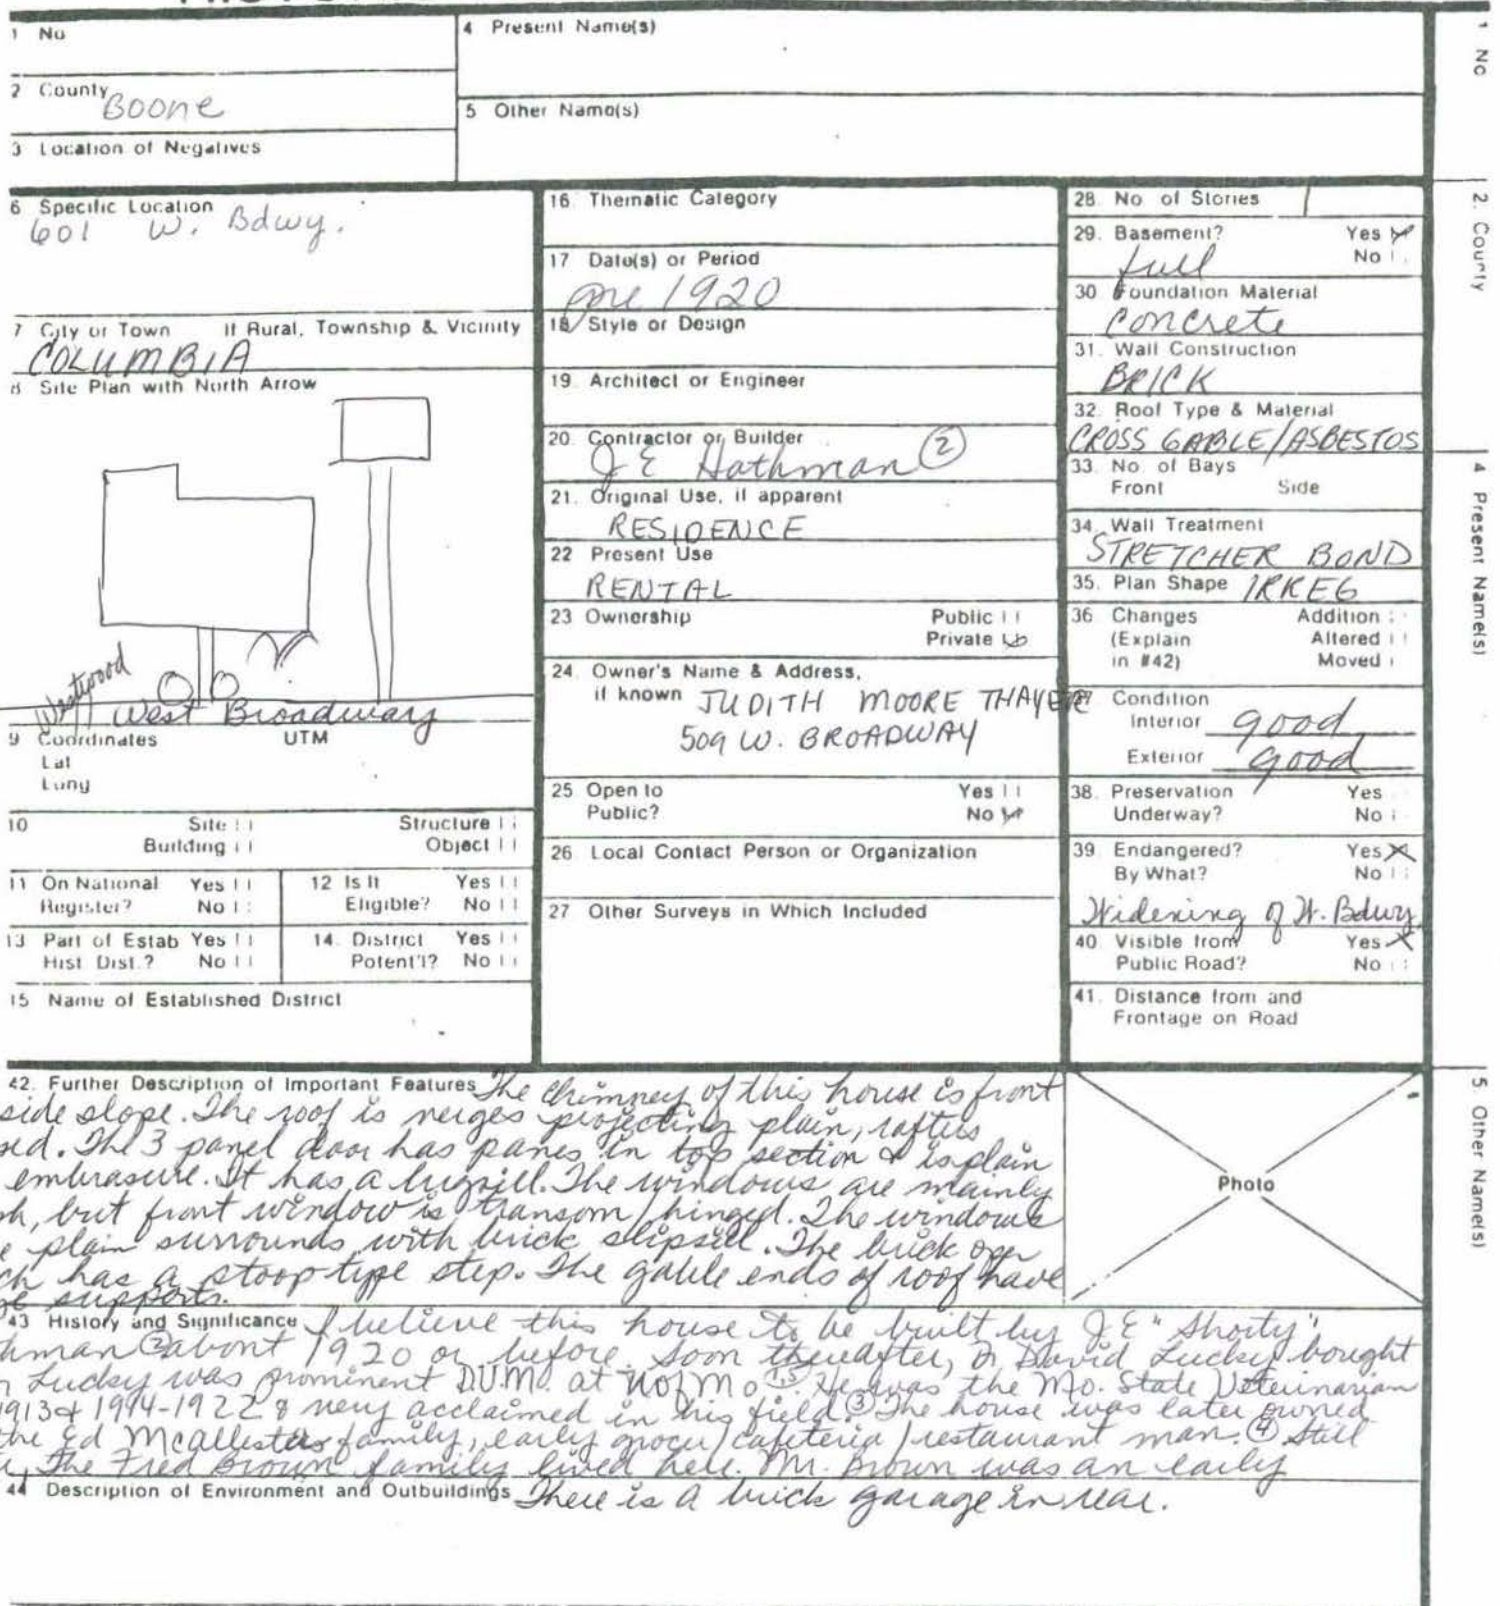 1 No
4 Present Name(s)
2 County
Boone
5 Other Name(s)
3 Location of Negatives
6 Specific Location
601 W. Bdwy.
7 City or Town If Rural, Township & Vicinity
COLUMBIA
8 Site Plan with North Arrow
Westwood
West Broadway
9 Coordinates UTM
Lat
Long
10 Site Structure
Building Object
11 On National Yes
Register? No
12 Is It Yes
Eligible? No
13 Part of Estab Yes
Hist Dist.? No
14. District Yes
Potent'l? No
15 Name of Established District
16. Thematic Category
17 Date(s) or Period
pre 1920
18 Style or Design
19. Architect or Engineer
20. Contractor or Builder
J E Hathman ②
21. Original Use, if apparent
RESIDENCE
22 Present Use
RENTAL
23 Ownership Public
Private
24. Owner's Name & Address,
if known JUDITH MOORE THAYER
509 W. BROADWAY
25 Open to Yes
Public? No
26 Local Contact Person or Organization
27 Other Surveys in Which Included
28. No of Stories 1
29. Basement? Yes
full No
30 Foundation Material
Concrete
31. Wall Construction
BRICK
32. Roof Type & Material
CROSS GABLE/ASBESTOS
33. No. of Bays
Front Side
34. Wall Treatment
STRETCHER BOND
35. Plan Shape IRREG
36 Changes Addition
(Explain Altered
in #42) Moved
37 Condition
Interior good
Exterior good
38. Preservation Yes
Underway? No
39. Endangered? Yes X
By What? No
Widening of W. Bdwy
40. Visible from Yes X
Public Road? No
41. Distance from and
Frontage on Road
42. Further Description of Important Features The chimney of this house is front
side slope. The roof is verges projecting plain, rafters
sed. The 3 panel door has panes in top section & is plain
embrasure. It has a lugsill. The windows are mainly
sh, but front window is transom/hinged. The windows
e plain surrounds with brick slipsill. The brick open
ch has a stoop type step. The gable ends of roof have
ge supports.
Photo
43 History and Significance I believe this house to be built by J E "Shorty"
hman ② about 1920 or before. Soon thereafter, Dr David Lucky bought
Lucky was prominent D.V.M. at U of Mo 1,5. He was the Mo. State Veterinarian
1913 & 1914-1922 & very acclaimed in his field. ③ The house was later owned
the Ed McAllester family, early grocer/cafeteria/restaurant man. ④ Still
The Fred Brown family lived here. Mr. Brown was an early
44 Description of Environment and Outbuildings There is a brick garage in rear.
1 No
2. County
4 Present Name(s)
5 Other Name(s)